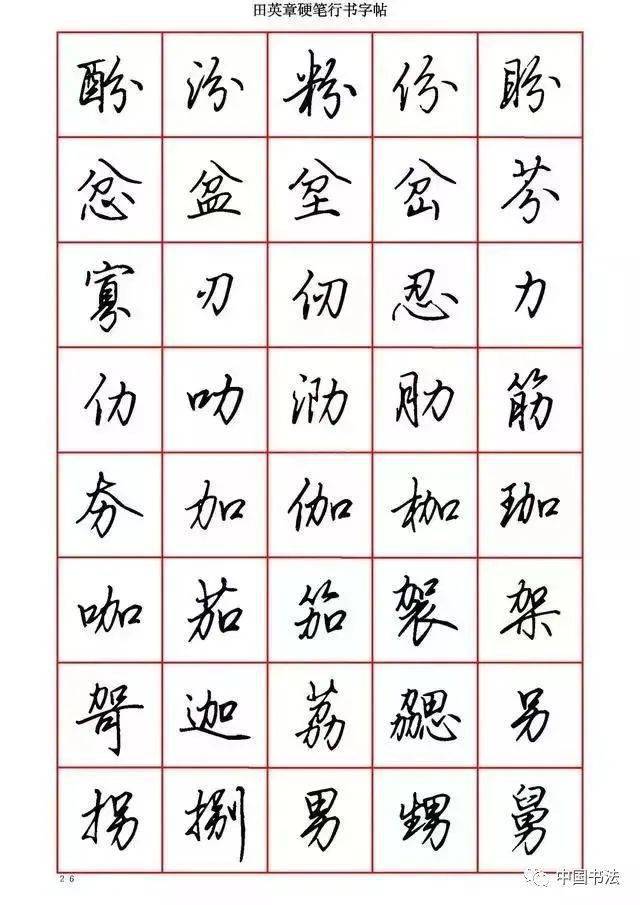 田英章硬笔行书字帖
酚 汾 粉 份 盼
忿 盆 坌 岔 芬
寡 刃 仞 忍 力
仂 叻 泐 肋 筋
夯 加 伽 枷 珈
咖 茄 笳 袈 架
哿 迦 荔 勰 另
拐 捌 男 甥 舅
26
中国书法